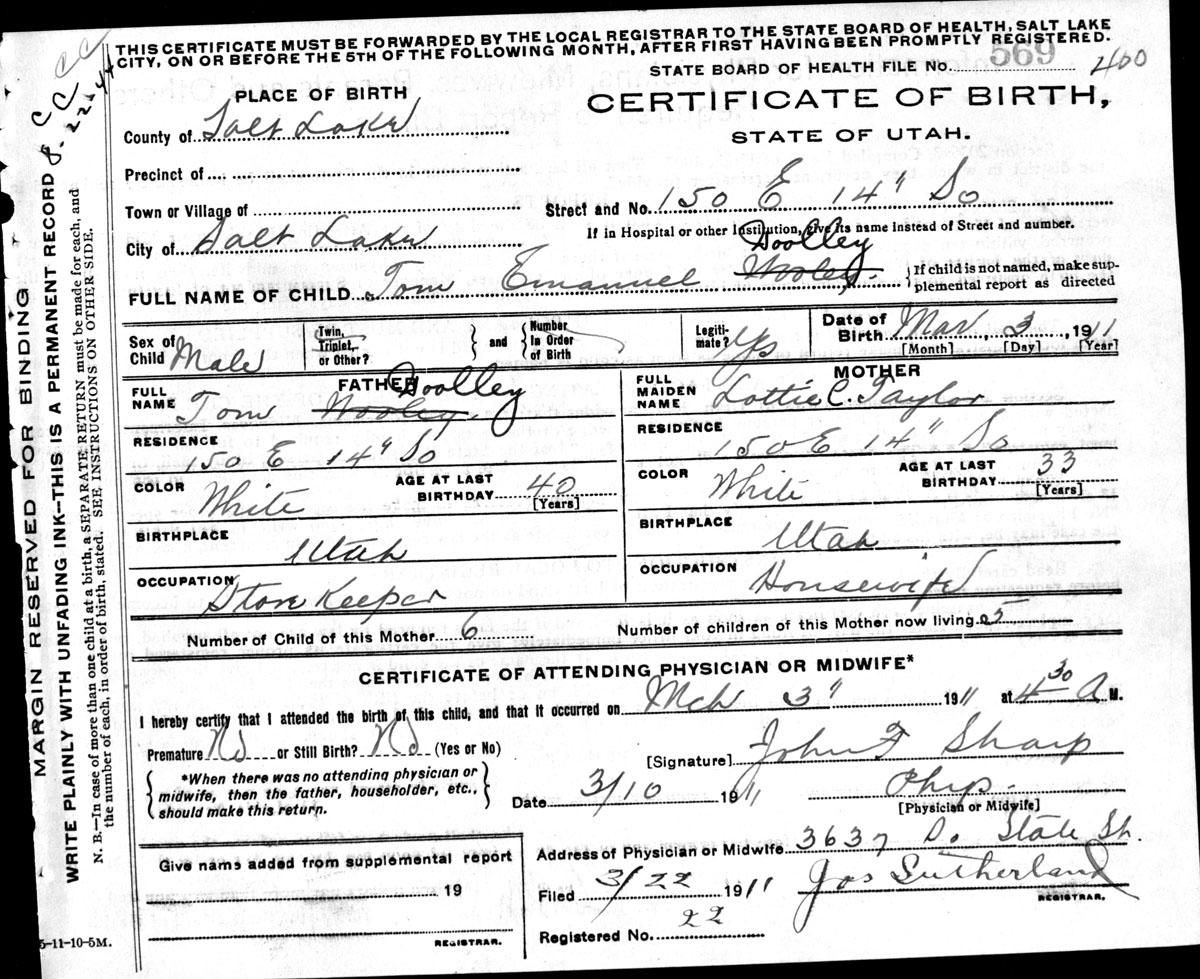 THIS CERTIFICATE MUST BE FORWARDED BY THE LOCAL REGISTRAR TO THE STATE BOARD OF HEALTH, SALT LAKE
CITY, ON OR BEFORE THE 5TH OF THE FOLLOWING MONTH, AFTER FIRST HAVING BEEN PROMPTLY REGISTERED.
STATE BOARD OF HEALTH FILE NO. 569 400
PLACE OF BIRTH
CERTIFICATE OF BIRTH,
County of Salt Lake
STATE OF UTAH.
Precinct of
Town or Village of
Street and No. 150 E 14" So
If in Hospital or other Institution, give its name instead of Street and number.
City of Salt Lake
FULL NAME OF CHILD Tom Emanuel Woolley Wooley
If child is not named, make supplemental report as directed
Sex of Child Male
Twin, Triplet, or Other?
and
Number in Order of Birth
Legitimate? Yes
Date of Birth Mar 3, 1911
[Month] [Day] [Year]
FATHER
FULL NAME Tom Woolley Wooley
RESIDENCE
150 E 14" So
COLOR White
AGE AT LAST BIRTHDAY 40
[Years]
BIRTHPLACE
Utah
OCCUPATION
Store Keeper
MOTHER
FULL MAIDEN NAME Lottie C. Taylor
RESIDENCE
150 E 14" So
COLOR White
AGE AT LAST BIRTHDAY 33
[Years]
BIRTHPLACE
Utah
OCCUPATION
Housewife
Number of Child of this Mother 6
Number of children of this Mother now living 5
CERTIFICATE OF ATTENDING PHYSICIAN OR MIDWIFE*
I hereby certify that I attended the birth of this child, and that it occurred on Mch 3" 1911 at 4 30 A M.
Premature No or Still Birth? No (Yes or No)
*When there was no attending physician or
midwife, then the father, householder, etc.,
should make this return.
[Signature] John F Sharp
Date 3/10 1911
Phys.
[Physician or Midwife]
Give name added from supplemental report
19
REGISTRAR.
Address of Physician or Midwife 3637 So State St.
Filed 3/22 1911 Jas Sutherland
REGISTRAR.
Registered No. 22
5-11-10-5M.
MARGIN RESERVED FOR BINDING
WRITE PLAINLY WITH UNFADING INK—THIS IS A PERMANENT RECORD
N. B.—In case of more than one child at a birth, a SEPARATE RETURN must be made for each, and
the number of each, in order of birth, stated. SEE INSTRUCTIONS ON OTHER SIDE.